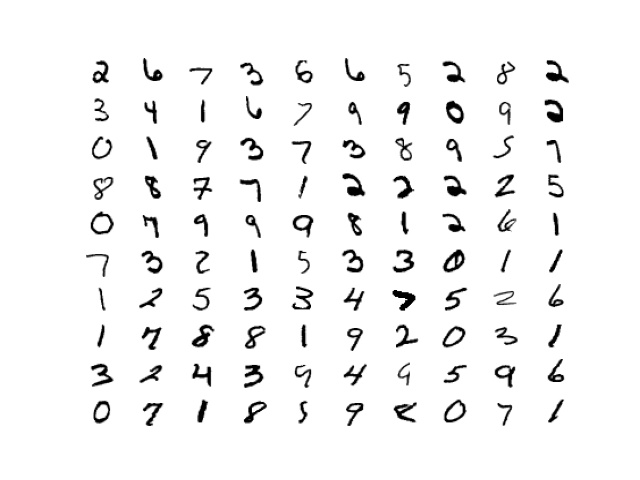 2 6 7 3 6 6 5 2 8 2
3 4 1 6 7 9 9 0 9 2
0 1 9 3 7 3 8 9 5 7
8 8 7 7 1 2 2 2 2 5
0 7 9 9 9 8 1 2 6 1
7 3 2 1 5 3 3 0 1 1
1 2 5 3 3 4 7 5 2 6
1 7 8 8 1 9 2 0 3 1
3 2 4 3 9 4 9 5 9 6
0 7 1 8 5 9 8 0 7 1